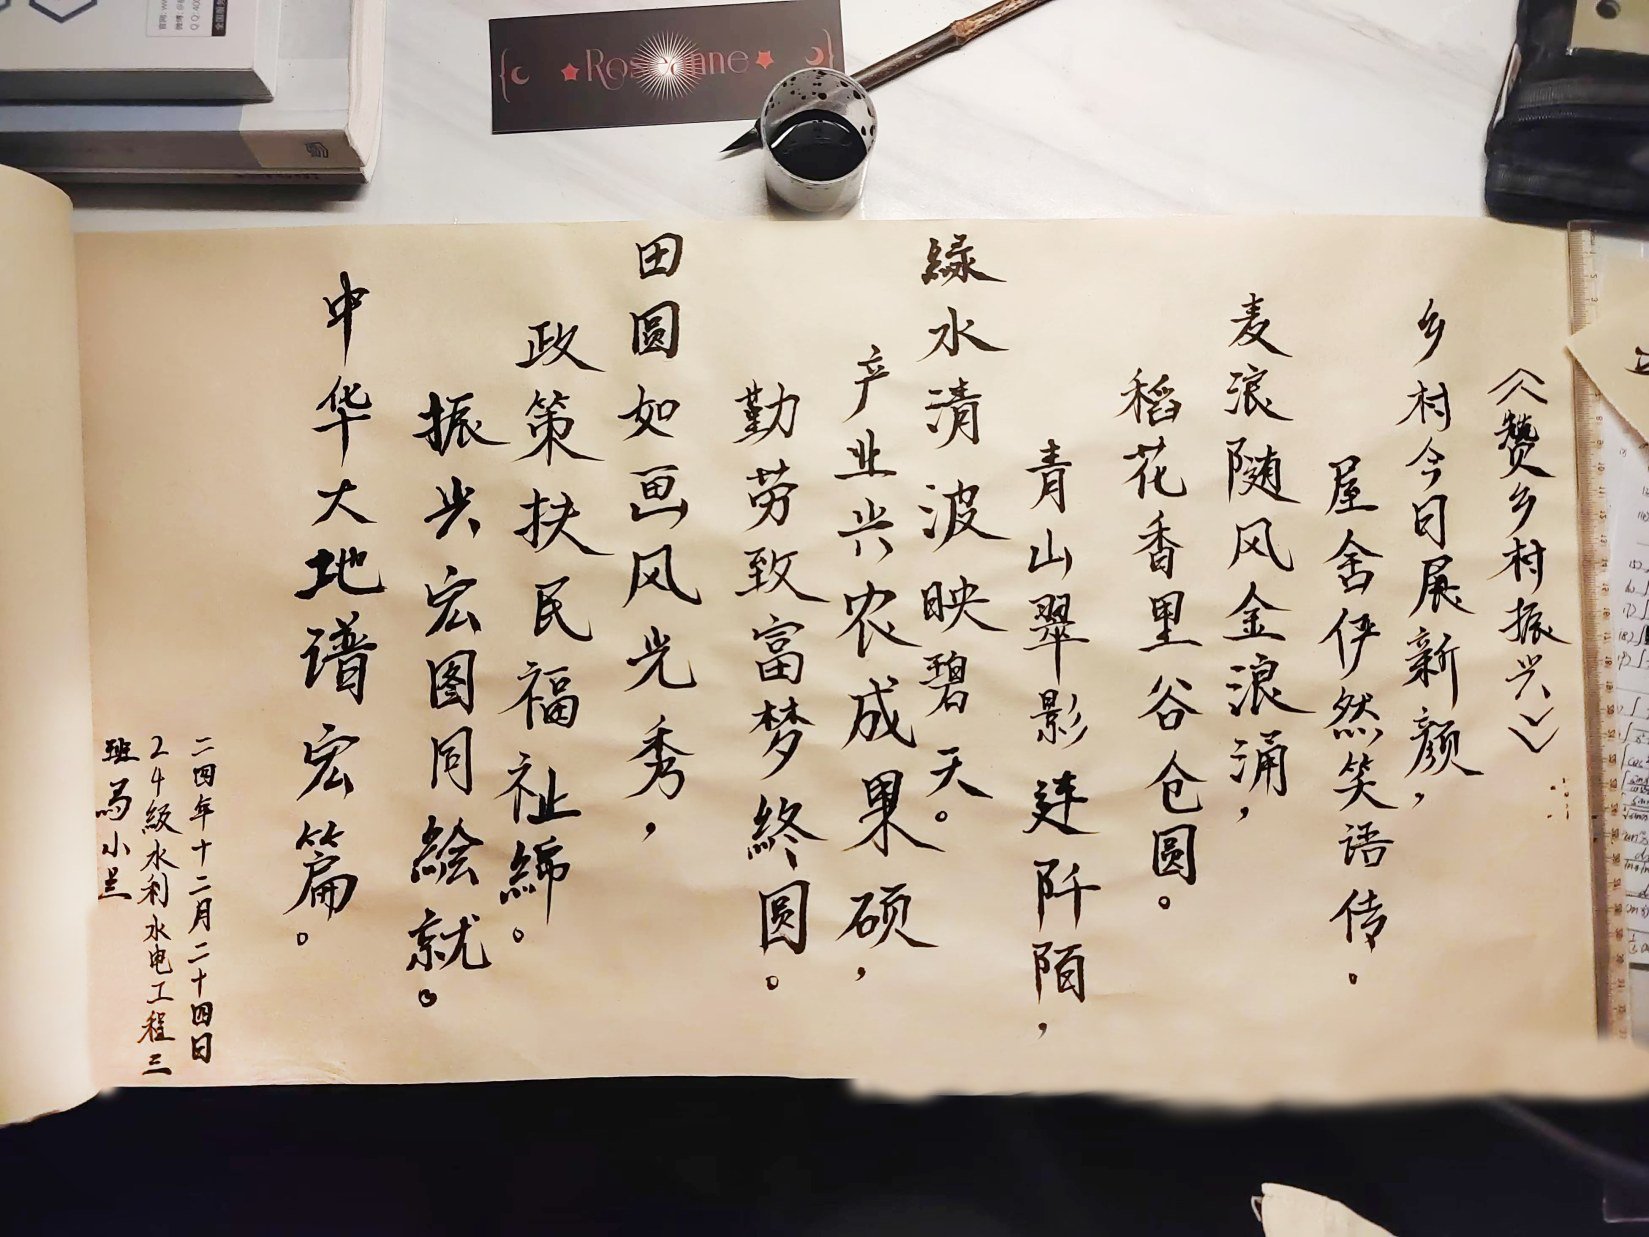 《赞乡村振兴》
乡村今日展新颜，
屋舍伊然笑语传。
麦浪随风金浪涌，
稻花香里谷仓圆。
青山翠影连阡陌，
緑水清波映碧天。
产业兴农成果硕，
勤劳致富梦終圆。
田圆如画风光秀，
政策扶民福祉綿。
振兴宏图同絵就。
中华大地谱宏篇。
二四年十二月二十四日
24級水利水电工程三
班马小兰